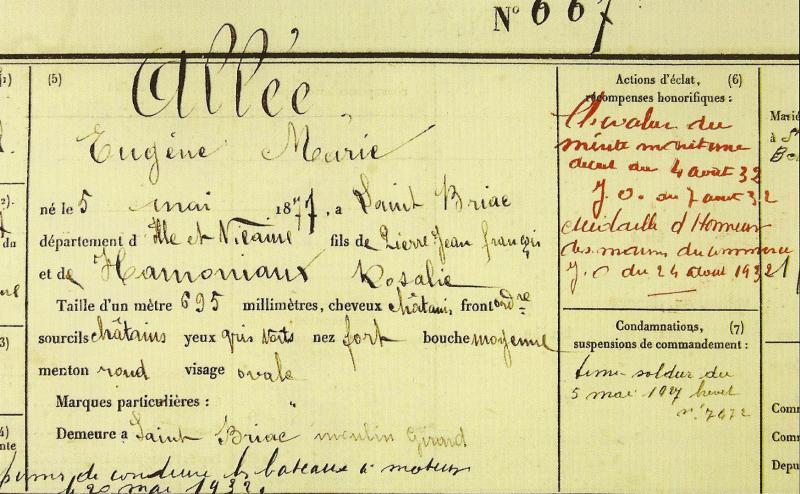 N° 667
(5)
Allée
Eugène Marie
né le 5 mai 1877, a Saint Briac
département d'Ille et Vilaine fils de Pierre Jean françois
et de Hamoniaux Rosalie
Taille d'un mètre 695 millimètres, cheveux châtains, front ordre
sourcils châtains yeux gris verts nez fort bouche moyenne
menton rond visage ovale
Marques particulières : "
Demeure a Saint Briac moulin Girard
permis de conduire les bateaux à moteur
20 mai 1932.
Actions d'éclat, (6)
récompenses honorifiques :
Chevalier du
mérite maritime
décret du 4 aout 32
J. O. du 7 aout 32
Médaille d'Honneur
des marins du commerce
J. O du 24 aout 1932
Condamnations, (7)
suspensions de commandement :
soldur du
5 mai 1927 brevet
n° 7072
Marié
à S
Comm
Com
Depu